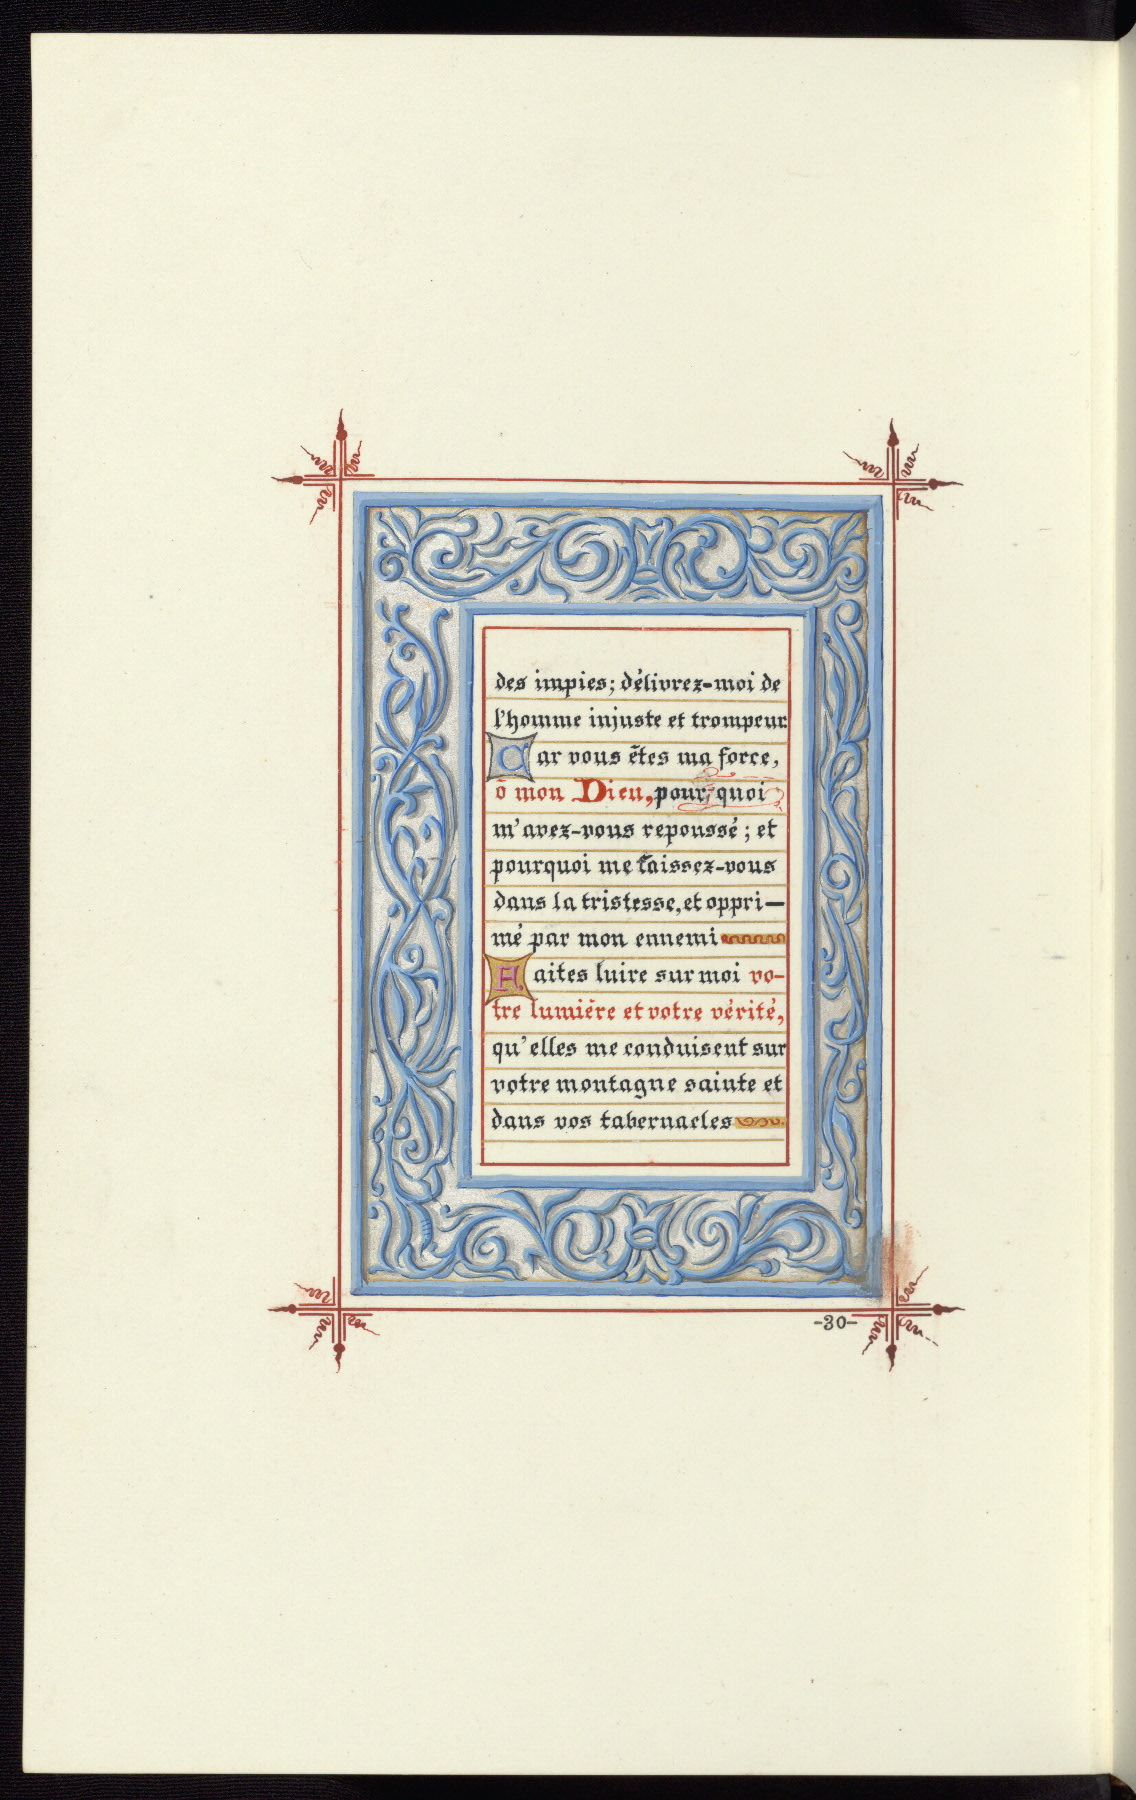 des impies; délivrez-moi de
l'homme injuste et trompeur.
Car vous êtes ma force,
ô mon Dieu, pourquoi
m'avez-vous repoussé; et
pourquoi me laissez-vous
dans la tristesse, et oppri-
mé par mon ennemi
Faites luire sur moi vo-
tre lumière et votre vérité,
qu'elles me conduisent sur
votre montagne sainte et
dans vos tabernacles
-30-